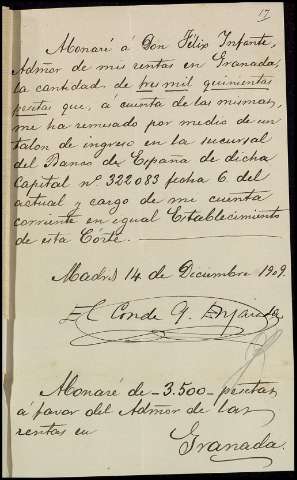 17
Abonaré á Don Félix Infante,
Admor de mis rentas en Granada,
la cantidad de tres mil quinientas
pesetas que, a cuenta de las mismas,
me ha remesado por medio de un
talon de ingreso en la sucursal
del Banco de España de dicha
Capital nº 322083 fecha 6 del
actual y cargo de mi cuenta
corriente en igual Establecimiento
de esta Córte.
Madrid 14 de Diciembre 1909.
El Conde
Abonaré de -3.500- pesetas
á favor del Admor de las
rentas en
Granada.